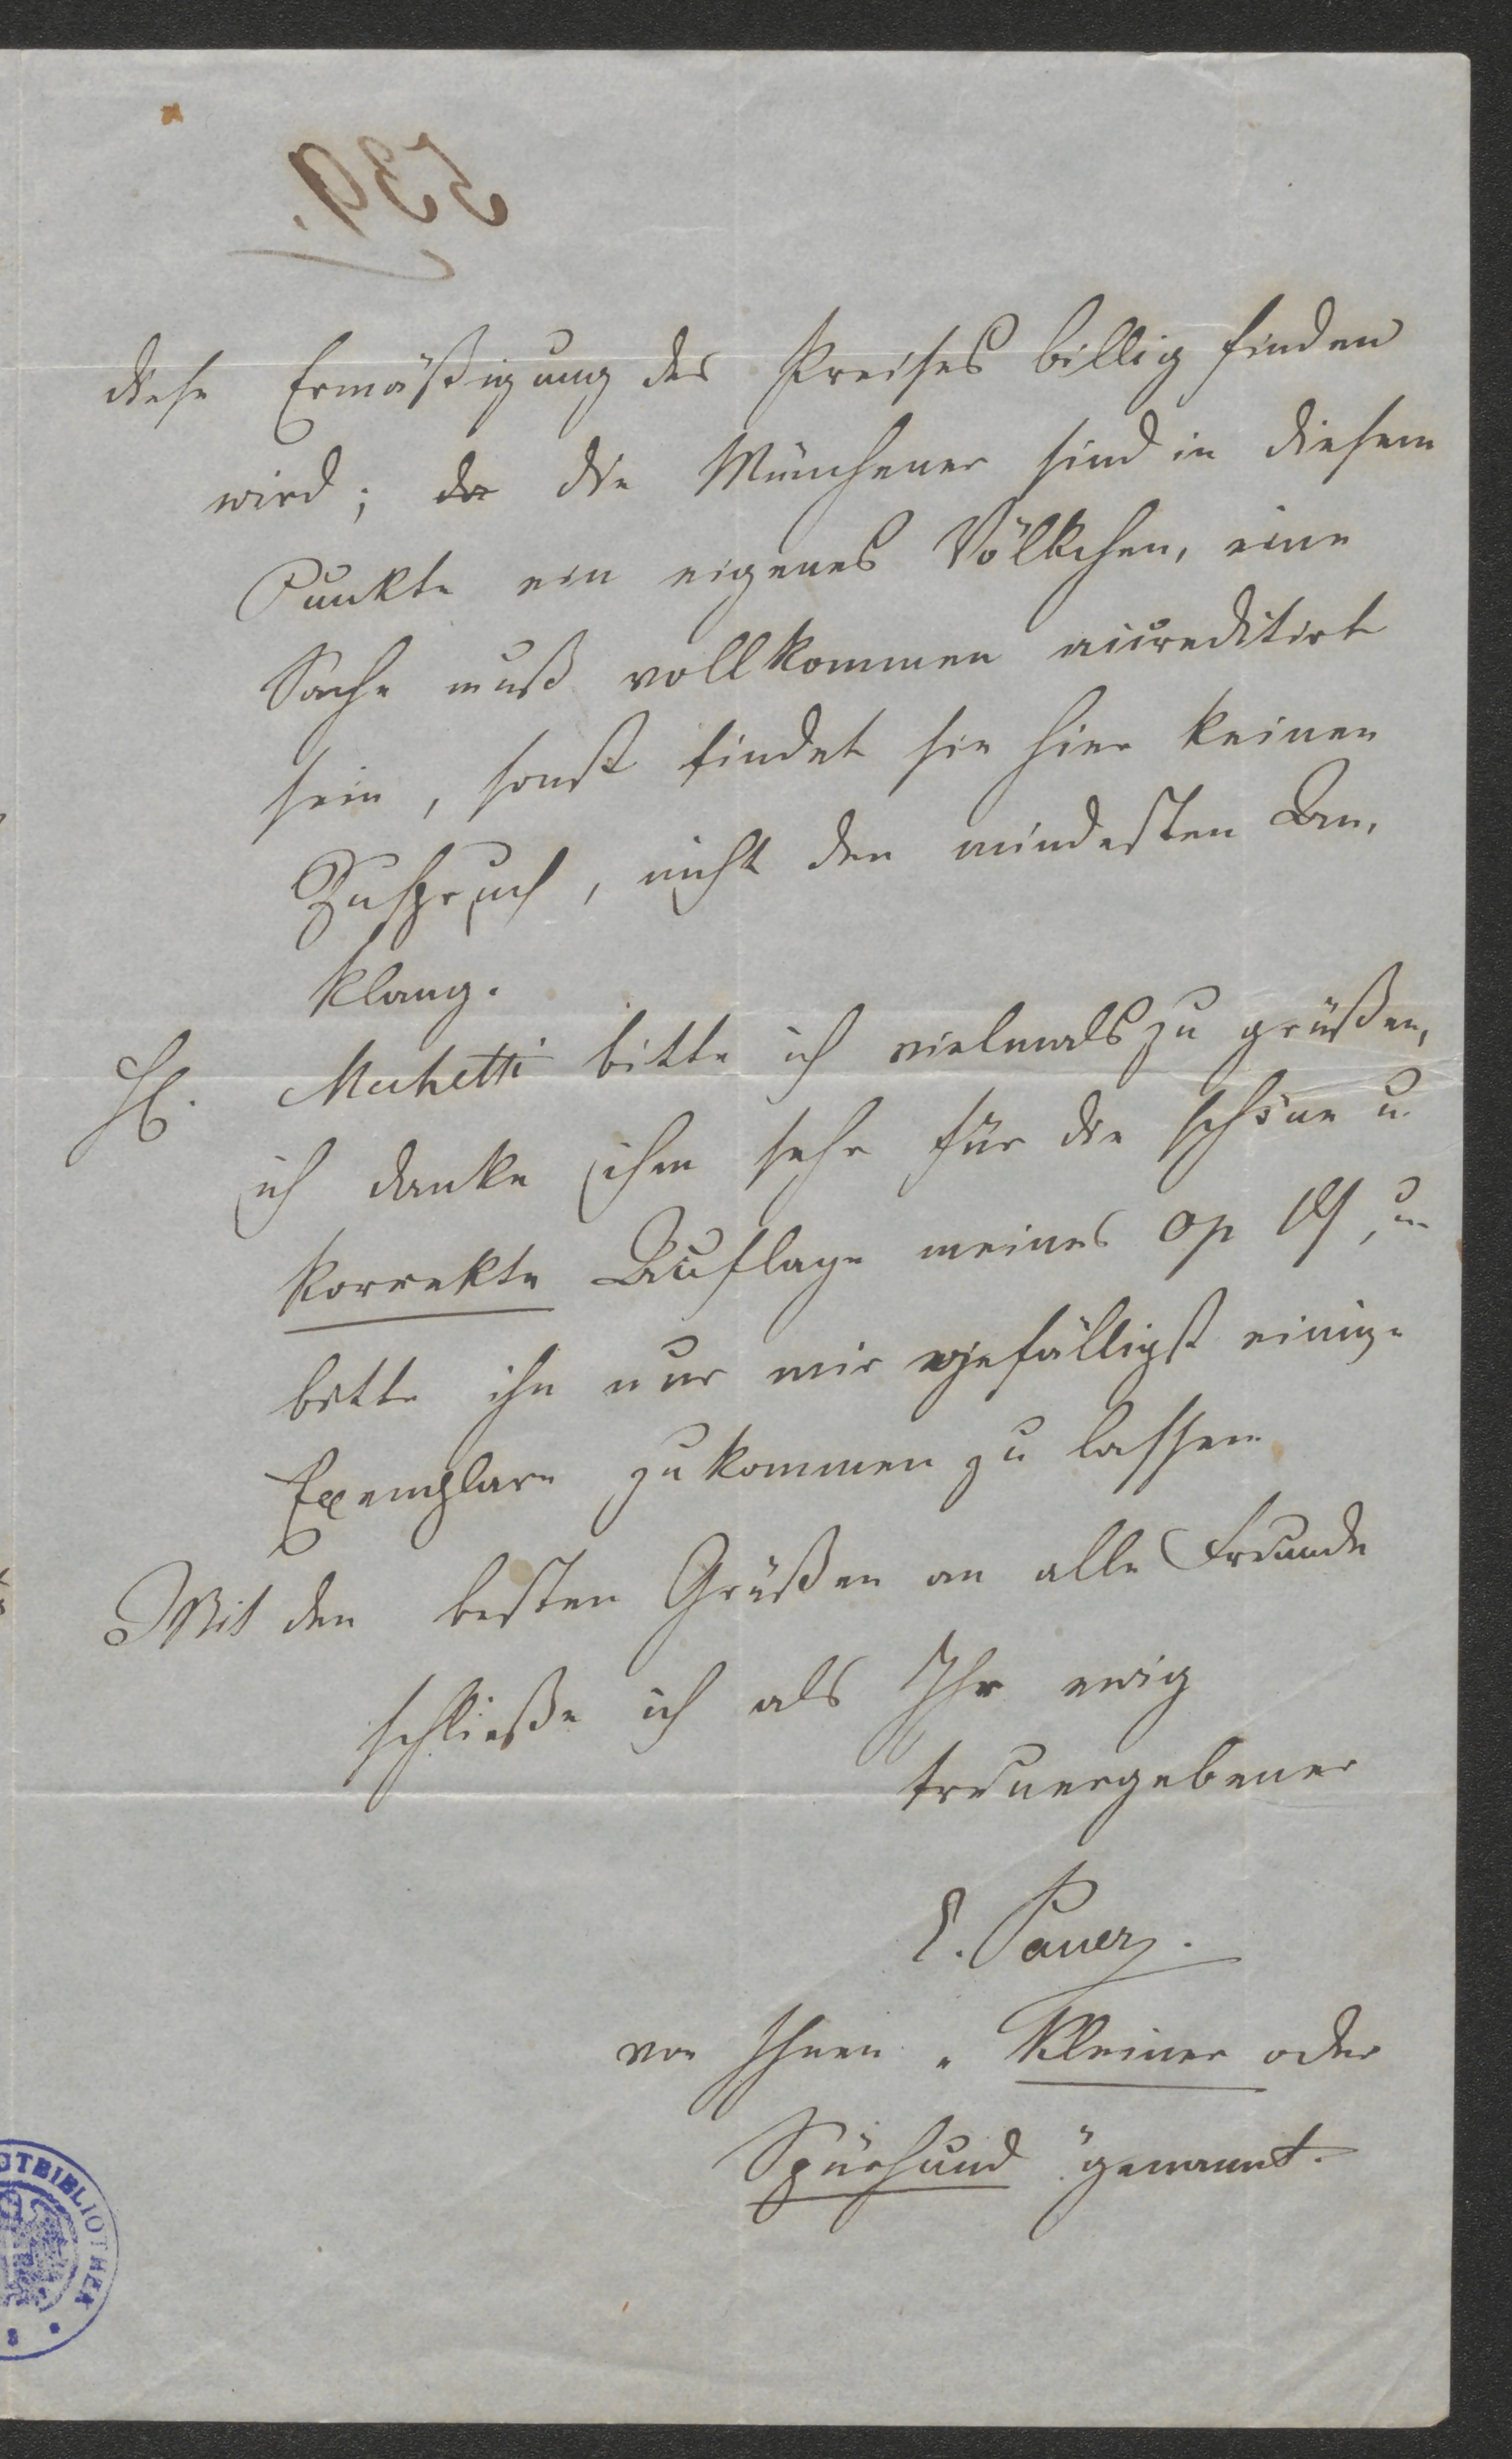 539.
diese Ermäßigung des Preises billig finden
wird; da die Münchener sind in diesem
Punkte ein eigenes Völkchen, eine
Sache muß vollkommen accreditirt
sein, sonst findet sie hier keinen
Zuspruch, nicht den mindesten An-
klang.
H. Mechetti bitte ich vielmals zu grüßen,
ich danke ihm sehr für die schöne u
korrekte Auflage meines op , u
bitte ihn nur mir gefälligst einige
Exemplare zukommen zu lassen
Mit den besten Grüßen an alle Freunde
schließe ich als Ihr ewig
treuergebener
E. Pauer.
von Ihnen „Kleiner oder
Spürhund" genannt.
OTBIBLIOTHEK